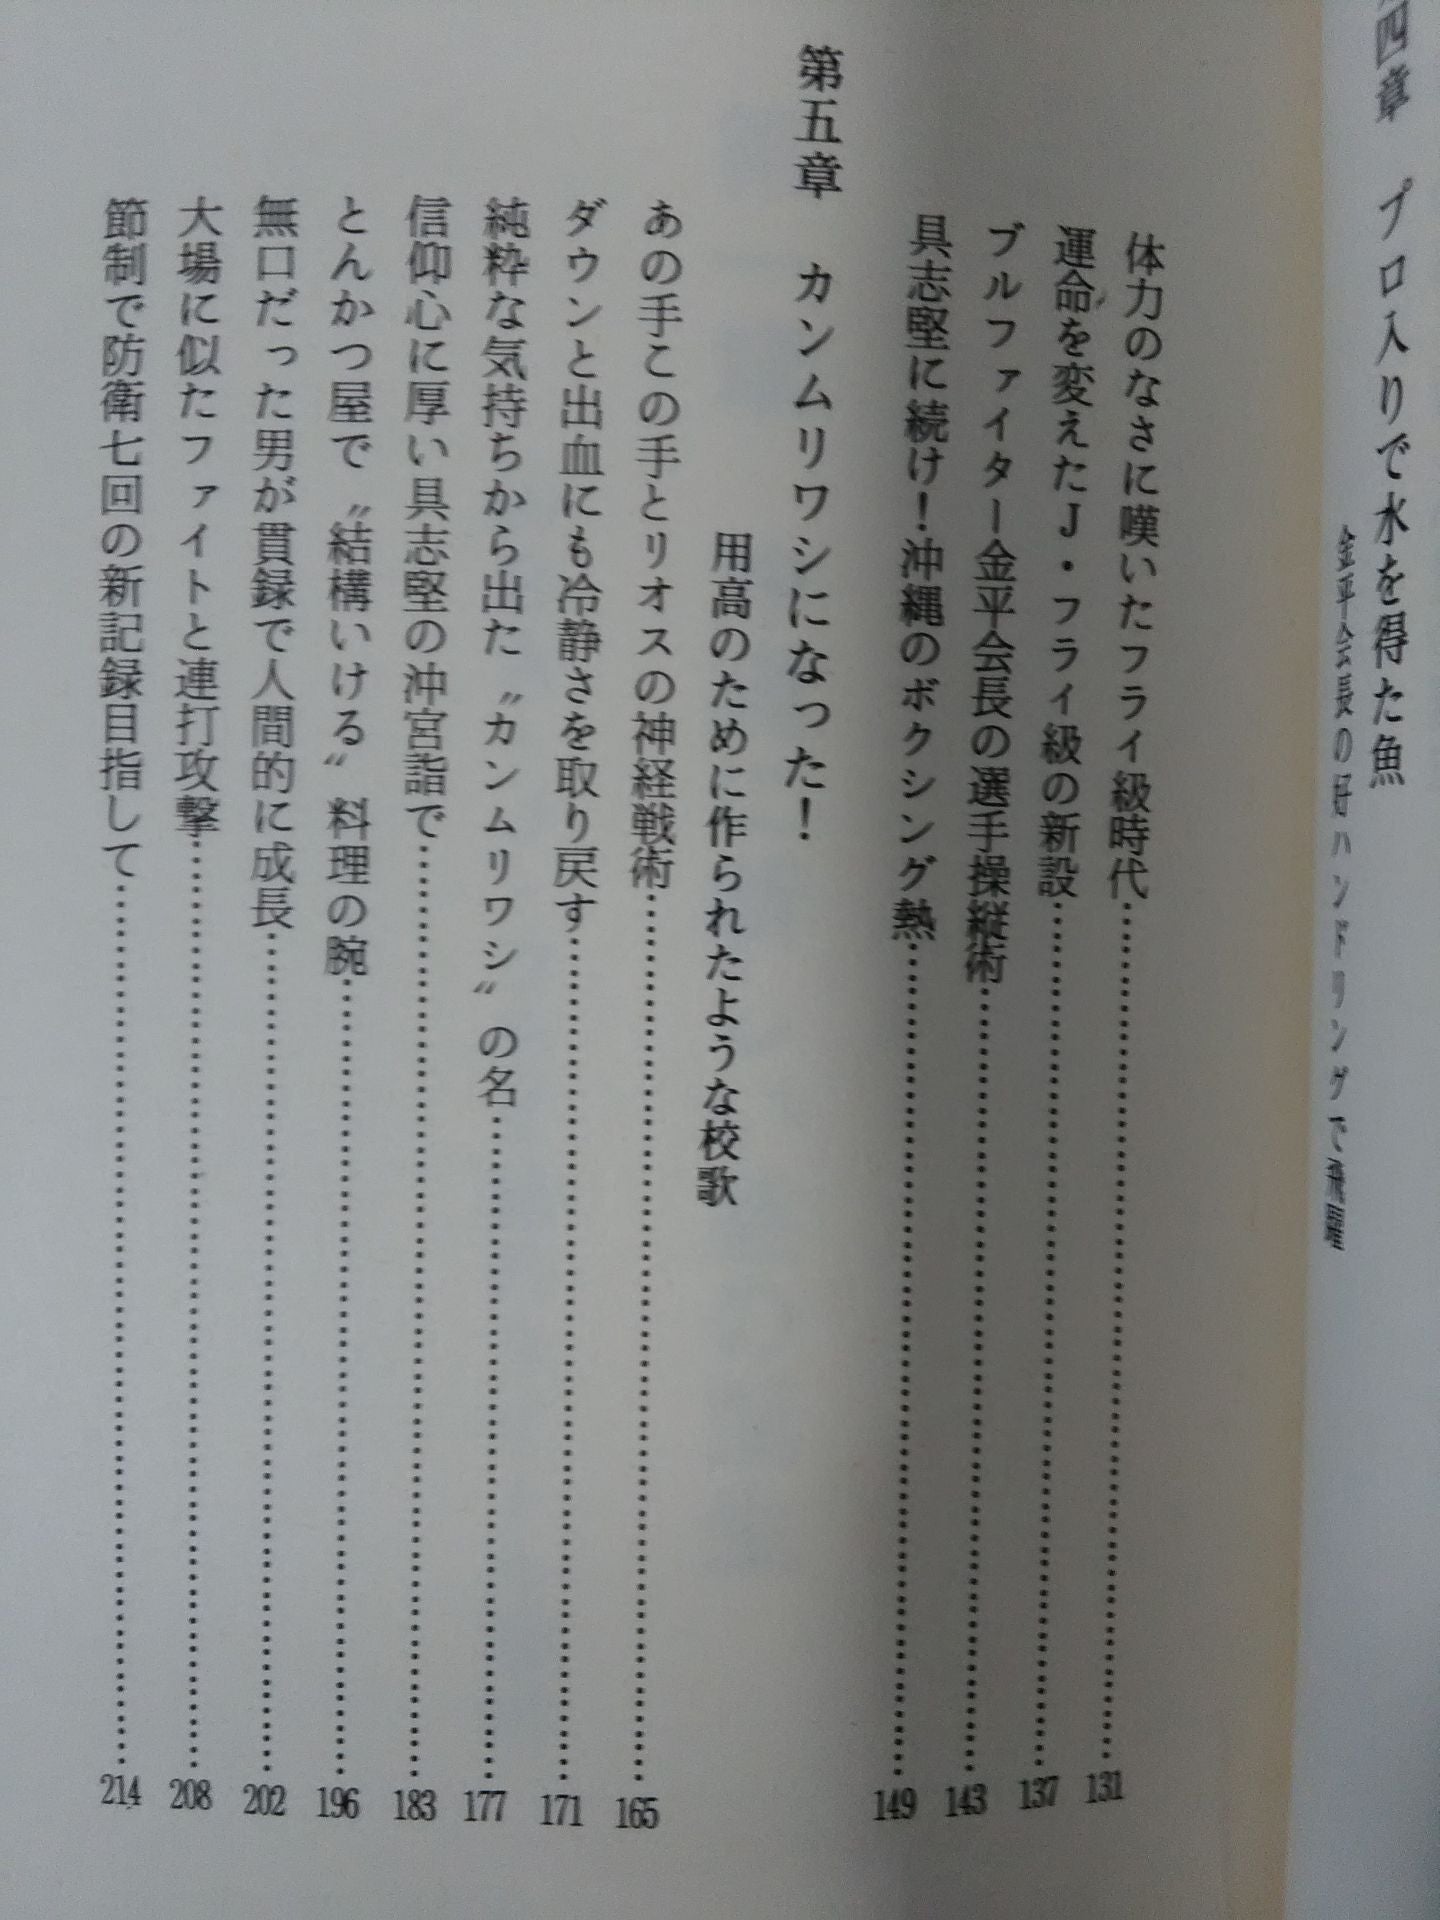 四章　プロ入りで水を得た魚
金平会長の好ハンドリングで飛躍
体力のなさに嘆いたフライ級時代……………………131
運命を変えたJ・フライ級の新設……………………137
ブルファイター金平会長の選手操縦術……………………143
具志堅に続け！沖縄のボクシング熱……………………149
第五章　カンムリワシになった！
用高のために作られたような校歌
あの手この手とリオスの神経戦術……………………165
ダウンと出血にも冷静さを取り戻す……………………171
純粋な気持ちから出た〝カンムリワシ〟の名……………………177
信仰心に厚い具志堅の沖宮詣で……………………183
とんかつ屋で〝結構いける〟料理の腕……………………196
無口だった男が貫録で人間的に成長……………………202
大場に似たファイトと連打攻撃……………………208
節制で防衛七回の新記録目指して……………………214